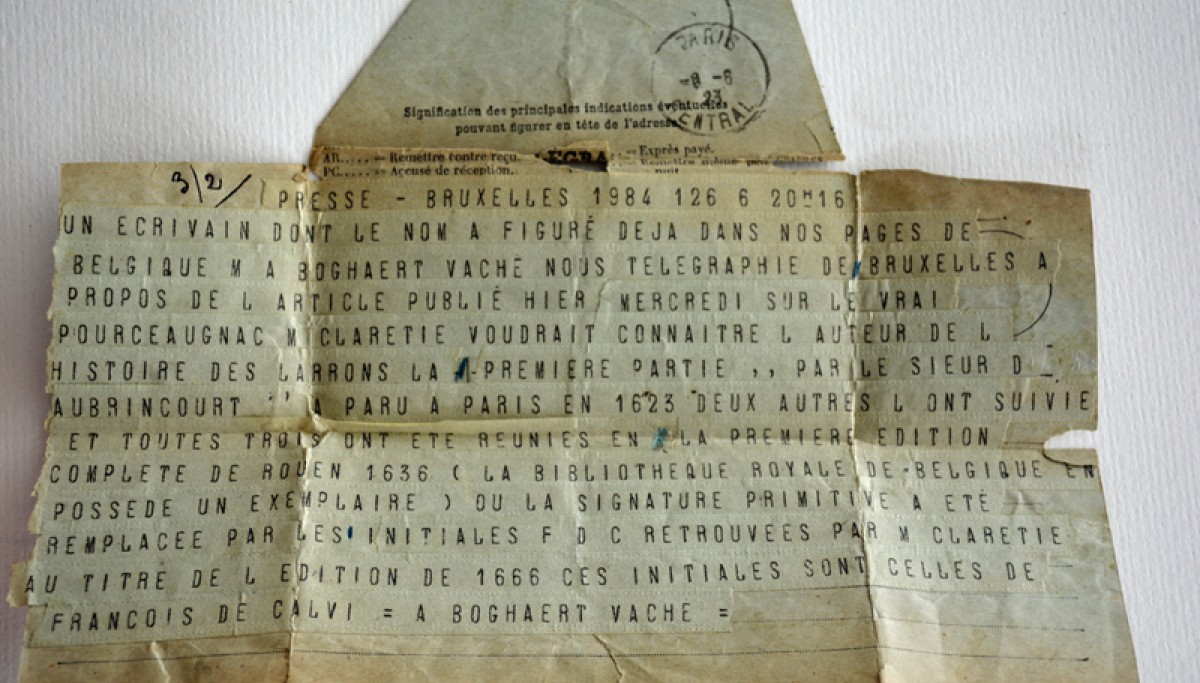 PARIS
-8 -6
23
CENTRAL
Signification des principales indications éventuelles
pouvant figurer en tête de l'adresse
AR..... = Remettre contre reçu.
= Exprès payé.
PC..... = Accusé de réception.
3/2/
PRESSE - BRUXELLES 1984 126 6 20H16
UN ECRIVAIN DONT LE NOM A FIGURÉ DEJA DANS NOS PAGES DE
BELGIQUE M A BOGHAERT VACHE NOUS TELEGRAPHIE DE BRUXELLES A
PROPOS DE L ARTICLE PUBLIÉ HIER MERCREDI SUR LE VRAI
POURCEAUGNAC M CLARETIE VOUDRAIT CONNAITRE L AUTEUR DE L
HISTOIRE DES LARRONS LA -PREMIERE PARTIE ,, PAR LE SIEUR D
AUBRINCOURT '' A PARU A PARIS EN 1623 DEUX AUTRES L ONT SUIVIE
ET TOUTES TROIS ONT ETE REUNIES EN LA PREMIERE EDITION
COMPLETE DE ROUEN 1636 ( LA BIBLIOTHEQUE ROYALE DE-BELGIQUE EN
POSSEDE UN EXEMPLAIRE ) OU LA SIGNATURE PRIMITIVE A ETÉ
REMPLACÉE PAR LES INITIALES F D C RETROUVEES PAR M CLARETIE
AU TITRE DE L EDITION DE 1666 CES INITIALES SONT CELLES DE
FRANCOIS DE CALVI = A BOGHAERT VACHE =